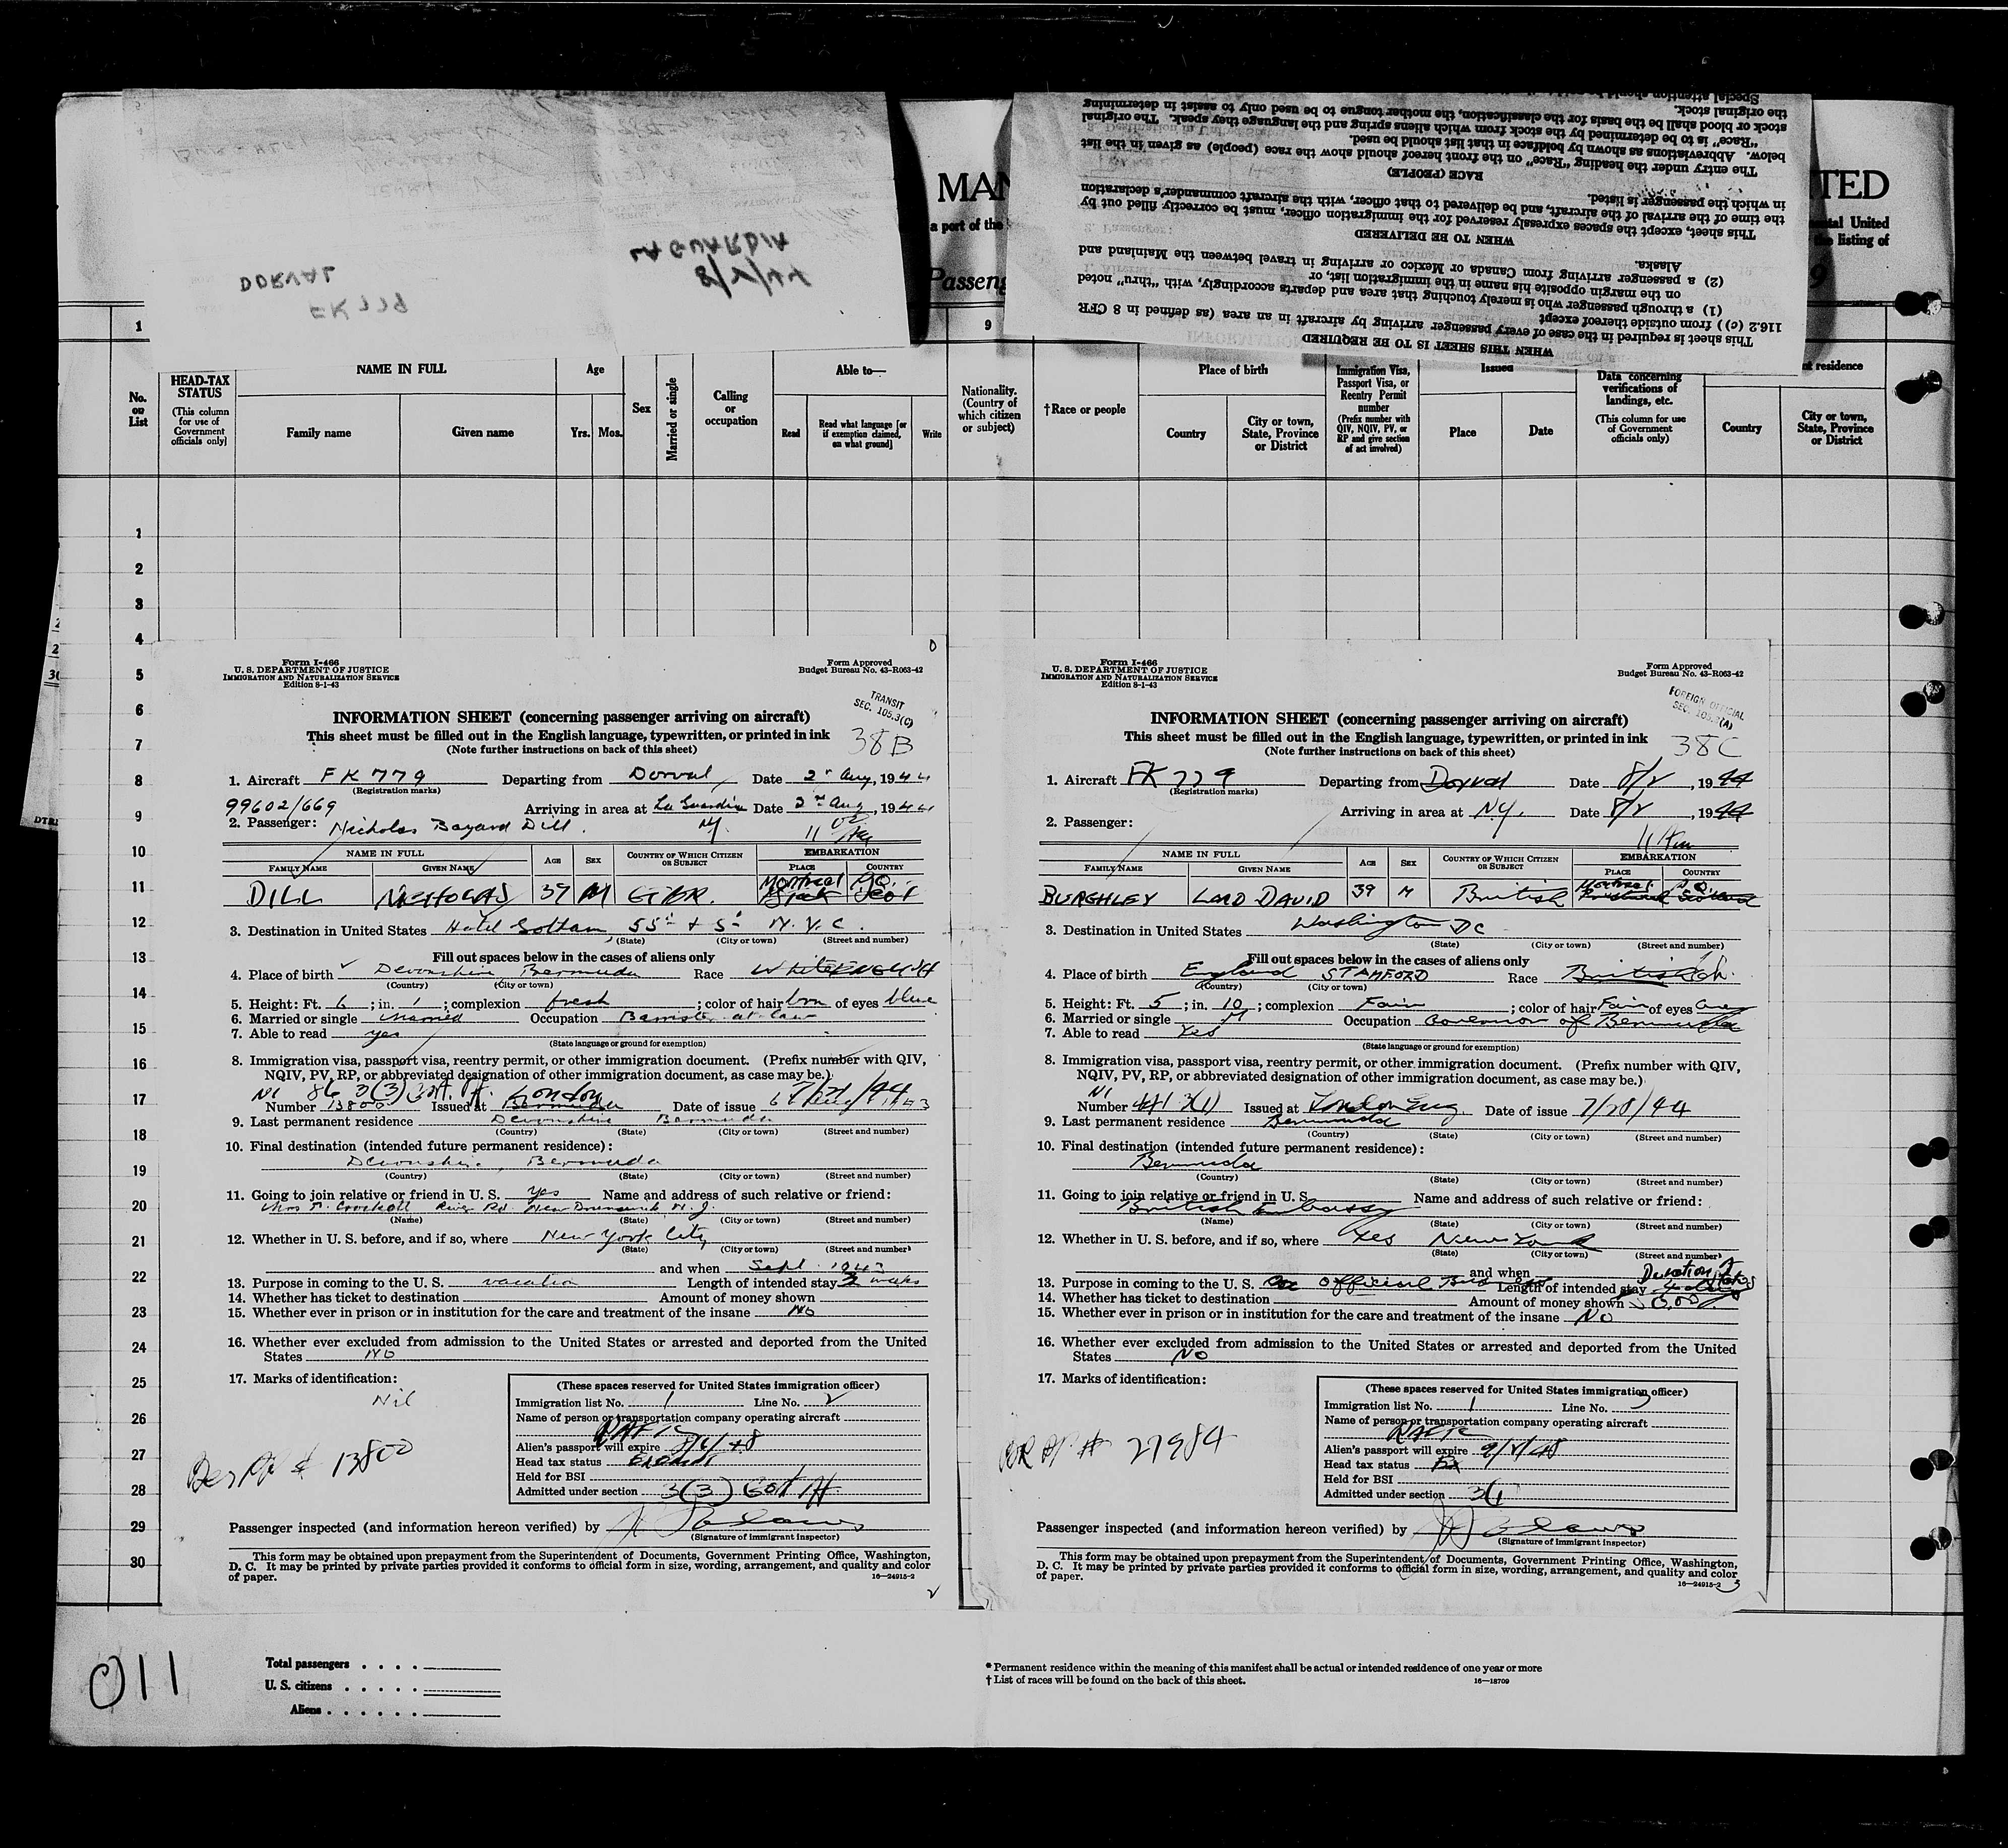 MAN
TED
a part of the
tal United
the listing of
Passeng
9
LA GUARDIA
8/2/44
DORVAL
FK 779
WHEN THIS SHEET IS TO BE REQUIRED
This sheet is required in the case of every passenger arriving by aircraft in an area (as defined in 8 CFR
116.2 (c)) from outside thereof except
(1) a through passenger who is merely touching that area and departs accordingly, with "thru" noted
on the margin opposite his name in the immigration list, or
(2) a passenger arriving from Canada or Mexico or arriving in travel between the Mainland and
Alaska.
WHEN TO BE DELIVERED
This sheet, except the spaces expressly reserved for the immigration officer, must be correctly filled out by
the time of the arrival of the aircraft, and be delivered to that officer, with the aircraft commander's declaration
in which the passenger is listed.
RACE (PEOPLE)
The entry under the heading "Race" on the front hereof should show the race (people) as given in the list
below. Abbreviations as shown by boldface in that list should be used.
"Race" is to be determined by the stock from which aliens spring and the language they speak. The original
stock or blood shall be the basis for the classification, the mother tongue to be used only to assist in determining
the original stock.
Special attention should be
1
9
No. on List
HEAD-TAX STATUS
(This column for use of Government officials only)
NAME IN FULL
Family name
Given name
Age
Yrs.
Mos.
Sex
Married or single
Calling or occupation
Able to—
Read
Read what language [or if exemption claimed, on what ground]
Write
Nationality. (Country of which citizen or subject)
†Race or people
Place of birth
Country
City or town, State, Province or District
Immigration Visa, Passport Visa, or Reentry Permit number
(Prefix number with QIV, NQIV, PV, or RP and give section of act involved)
Issued
Place
Date
Data concerning verifications of landings, etc.
(This column for use of Government officials only)
nt residence
Country
City or town, State, Province or District
1
2
3
4
5
6
7
8
9
10
11
12
13
14
15
16
17
18
19
20
21
22
23
24
25
26
27
28
29
30
Form I-466
U. S. DEPARTMENT OF JUSTICE
IMMIGRATION AND NATURALIZATION SERVICE
Edition 8-1-43
Form Approved
Budget Bureau No. 43-R063-42
TRANSIT
SEC. 105.3(C)
INFORMATION SHEET (concerning passenger arriving on aircraft)
This sheet must be filled out in the English language, typewritten, or printed in ink
(Note further instructions on back of this sheet)
38B
1. Aircraft FK 779 Departing from Dorval Date 2 Aug, 1944
(Registration marks)
99602/669
Arriving in area at La Guardia Date 2nd Aug, 1944
2. Passenger: Nicholas Bayard Dill. NY.
NAME IN FULL
FAMILY NAME
GIVEN NAME
AGE
SEX
COUNTRY OF WHICH CITIZEN OR SUBJECT
EMBARKATION
PLACE
COUNTRY
DILL NICHOLAS 39 M GT BR. Montreal P.Q.
3. Destination in United States Hotel Gotham 55 + 5 N.Y.C.
(State) (City or town) (Street and number)
Fill out spaces below in the cases of aliens only
4. Place of birth Devonshire Bermuda Race White ENGLISH
(Country) (City or town)
5. Height: Ft. 6; in. 1; complexion fresh; color of hair brn of eyes blue
6. Married or single Married Occupation Barrister at law
7. Able to read yes
(State language or ground for exemption)
8. Immigration visa, passport visa, reentry permit, or other immigration document. (Prefix number with QIV,
NQIV, PV, RP, or abbreviated designation of other immigration document, as case may be.)
NI 86 3(3) Gvt. Tr. London
Number 13800 Issued at Bermuda Date of issue
9. Last permanent residence Devonshire Bermuda
(Country) (State) (City or town) (Street and number)
10. Final destination (intended future permanent residence):
Devonshire, Bermuda
(Country) (State) (City or town) (Street and number)
11. Going to join relative or friend in U. S. yes Name and address of such relative or friend:
Mrs F. Crockett River Rd. New Brunswick N.J.
(Name) (State) (City or town) (Street and number)
12. Whether in U. S. before, and if so, where New York City
(State) (City or town) (Street and number)
and when Sept. 1943
13. Purpose in coming to the U. S. vacation Length of intended stay 2 weeks
14. Whether has ticket to destination Amount of money shown
15. Whether ever in prison or in institution for the care and treatment of the insane NO
16. Whether ever excluded from admission to the United States or arrested and deported from the United
States NO
17. Marks of identification:
Nil
Ber PP # 13800
(These spaces reserved for United States immigration officer)
Immigration list No. 1 Line No. 2
Name of person or transportation company operating aircraft
RAFTC
Alien's passport will expire 8/6/48
Head tax status Exempt
Held for BSI
Admitted under section 3(3) Govt Tr
Passenger inspected (and information hereon verified) by
(Signature of immigrant inspector)
This form may be obtained upon prepayment from the Superintendent of Documents, Government Printing Office, Washington,
D. C. It may be printed by private parties provided it conforms to official form in size, wording, arrangement, and quality and color
of paper.
16—24915-2
2
Form I-466
U. S. DEPARTMENT OF JUSTICE
IMMIGRATION AND NATURALIZATION SERVICE
Edition 8-1-43
Form Approved
Budget Bureau No. 43-R063-42
FOREIGN OFFICIAL
SEC. 105.3(A)
INFORMATION SHEET (concerning passenger arriving on aircraft)
This sheet must be filled out in the English language, typewritten, or printed in ink
(Note further instructions on back of this sheet)
38C
1. Aircraft FK 779 Departing from Dorval Date 8/2, 1944
(Registration marks)
Arriving in area at N.Y. Date 8/2, 1944
2. Passenger:
NAME IN FULL
FAMILY NAME
GIVEN NAME
AGE
SEX
COUNTRY OF WHICH CITIZEN OR SUBJECT
EMBARKATION
PLACE
COUNTRY
BURGHLEY LORD DAVID 39 M British Montreal P.Q.
3. Destination in United States Washington DC
(State) (City or town) (Street and number)
Fill out spaces below in the cases of aliens only
4. Place of birth England STAMFORD Race British
(Country) (City or town)
5. Height: Ft. 5; in. 10; complexion Fair; color of hair Fair of eyes Grey
6. Married or single M Occupation Governor of Bermuda
7. Able to read Yes
(State language or ground for exemption)
8. Immigration visa, passport visa, reentry permit, or other immigration document. (Prefix number with QIV,
NQIV, PV, RP, or abbreviated designation of other immigration document, as case may be.)
NI
Number 441 3(1) Issued at London Eng. Date of issue 7/28/44
9. Last permanent residence Bermuda
(Country) (State) (City or town) (Street and number)
10. Final destination (intended future permanent residence):
Bermuda
(Country) (State) (City or town) (Street and number)
11. Going to join relative or friend in U. S. Name and address of such relative or friend:
British Embassy
(Name) (State) (City or town) (Street and number)
12. Whether in U. S. before, and if so, where Yes New York
(State) (City or town) (Street and number)
and when
Duration of Status
13. Purpose in coming to the U. S. Official Length of intended stay
14. Whether has ticket to destination Amount of money shown
15. Whether ever in prison or in institution for the care and treatment of the insane No
16. Whether ever excluded from admission to the United States or arrested and deported from the United
States No
17. Marks of identification:
BR PP # 27984
(These spaces reserved for United States immigration officer)
Immigration list No. 1 Line No. 3
Name of person or transportation company operating aircraft
RAFTC
Alien's passport will expire 9/2/48
Head tax status Ex
Held for BSI
Admitted under section 3(1)
Passenger inspected (and information hereon verified) by
(Signature of immigrant inspector)
This form may be obtained upon prepayment from the Superintendent of Documents, Government Printing Office, Washington,
D. C. It may be printed by private parties provided it conforms to official form in size, wording, arrangement, and quality and color
of paper.
16—24915-2
3
011
Total passengers . . . .
U. S. citizens . . . . .
Aliens . . . . . .
* Permanent residence within the meaning of this manifest shall be actual or intended residence of one year or more
† List of races will be found on the back of this sheet.
16—18709